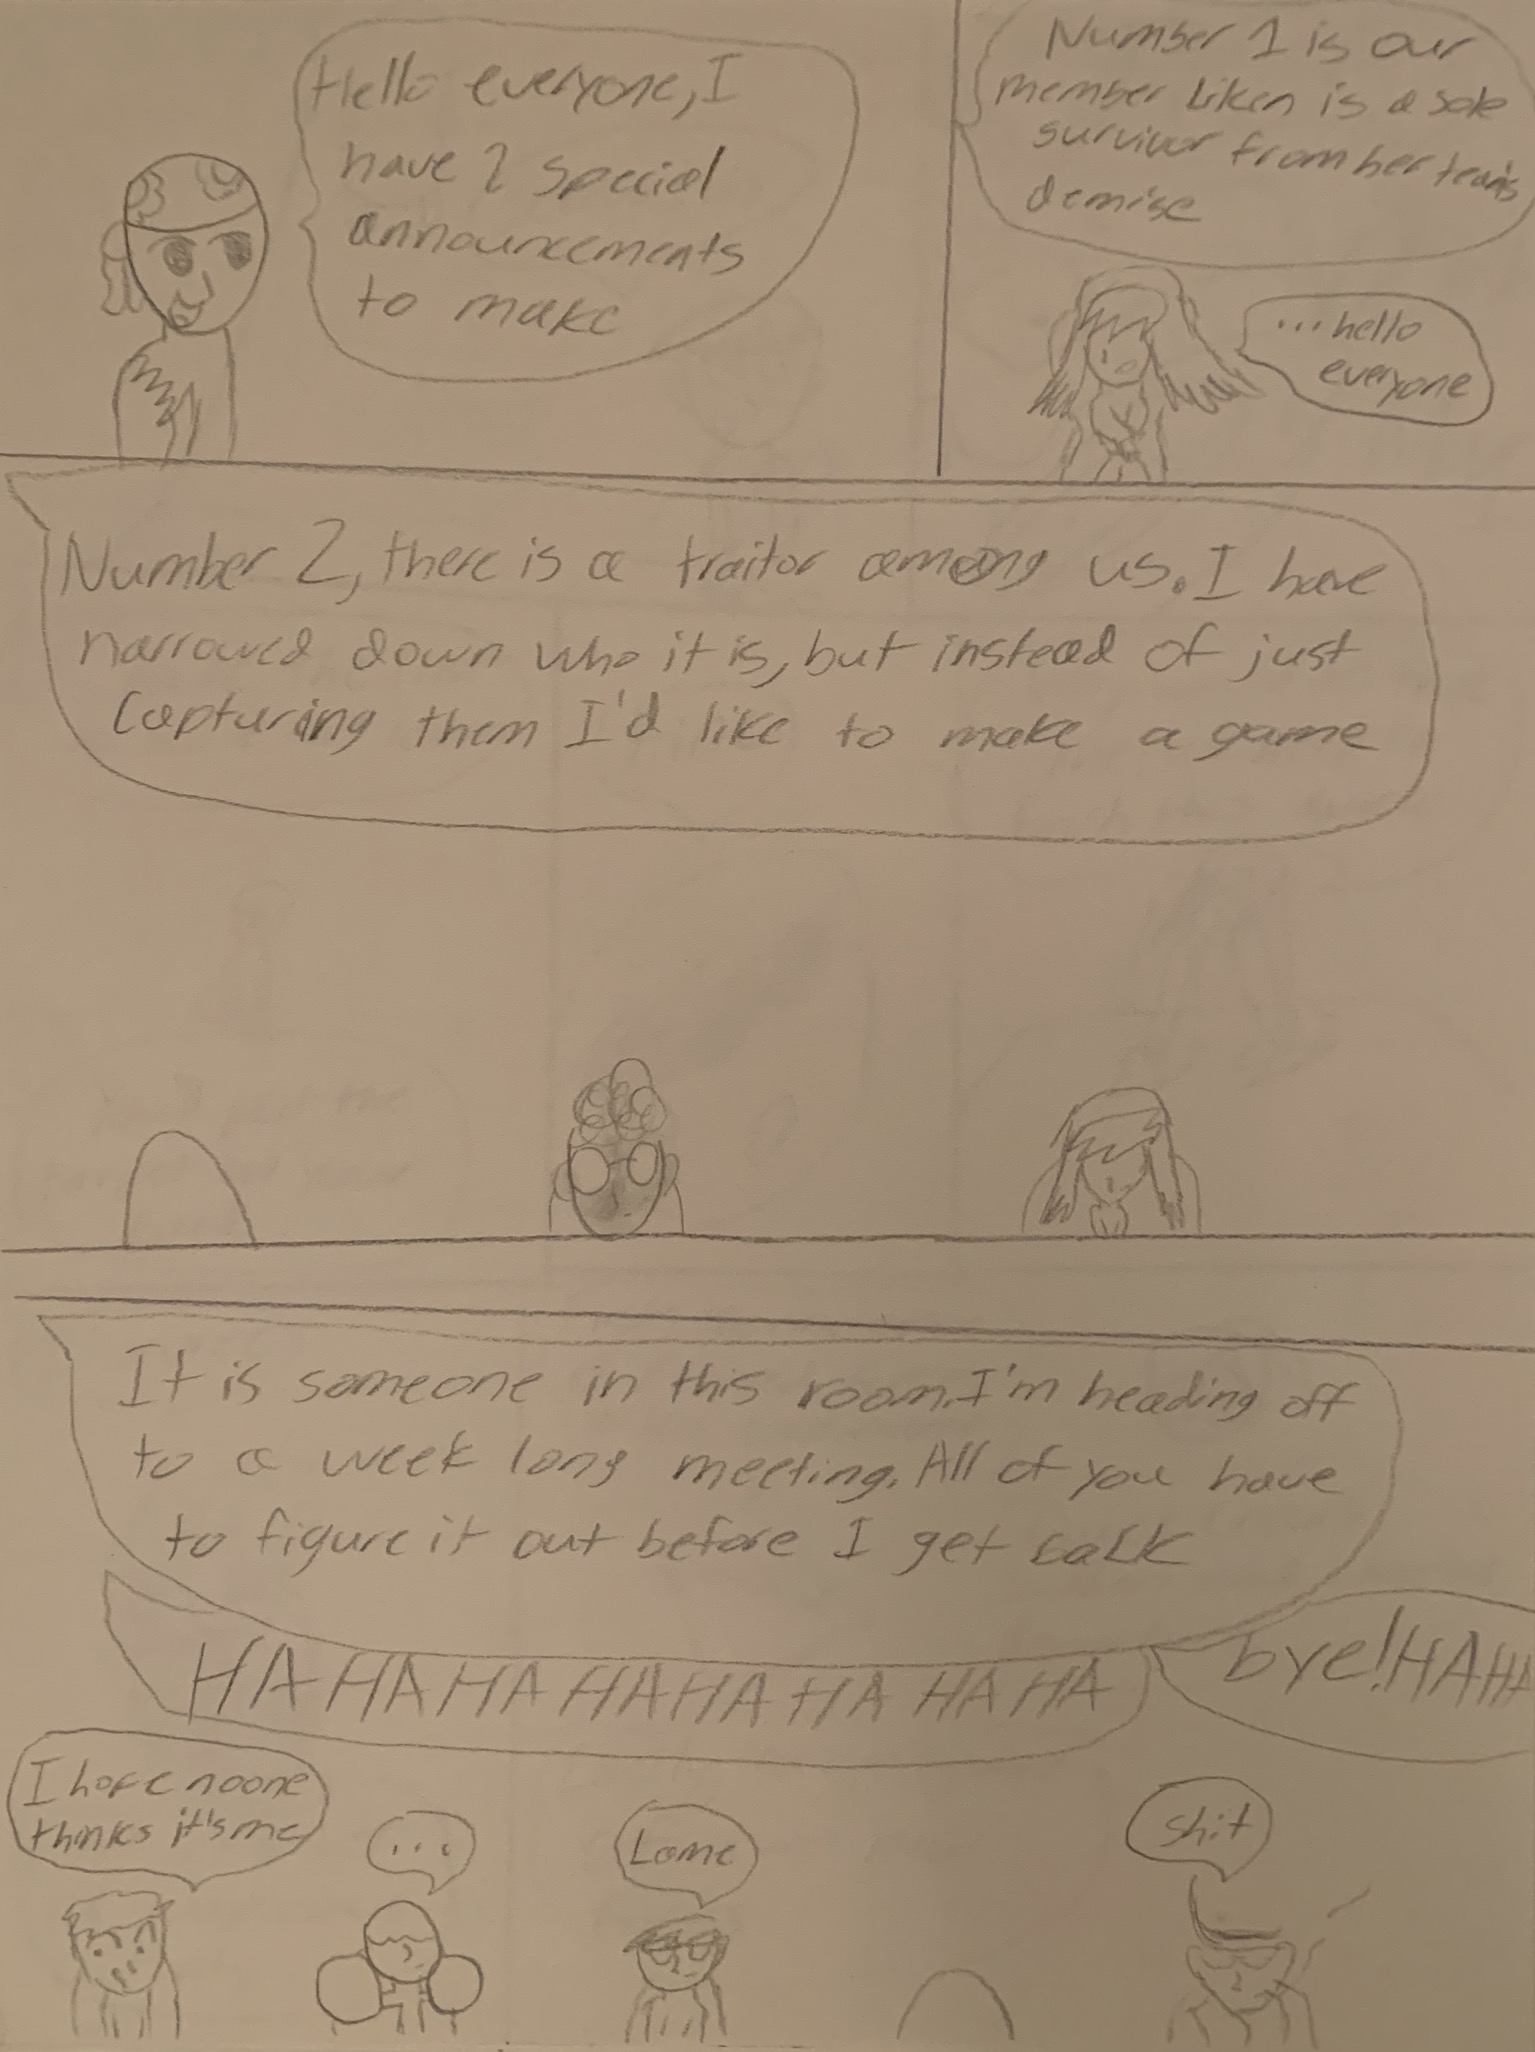 Hello everyone, I
have 2 special
announcements
to make
Number 1 is our
member Liken is a sole
survivor from her team's
demise
...hello
everyone
Number 2, there is a traitor among us. I have
narrowed down who it is, but instead of just
capturing them I'd like to make a game
It is someone in this room. I'm heading off
to a week long meeting. All of you have
to figure it out before I get back
HA HA HA HA HA HA HA HA
bye! HAHA
I hope noone
thinks it's me
...
Lame
shit